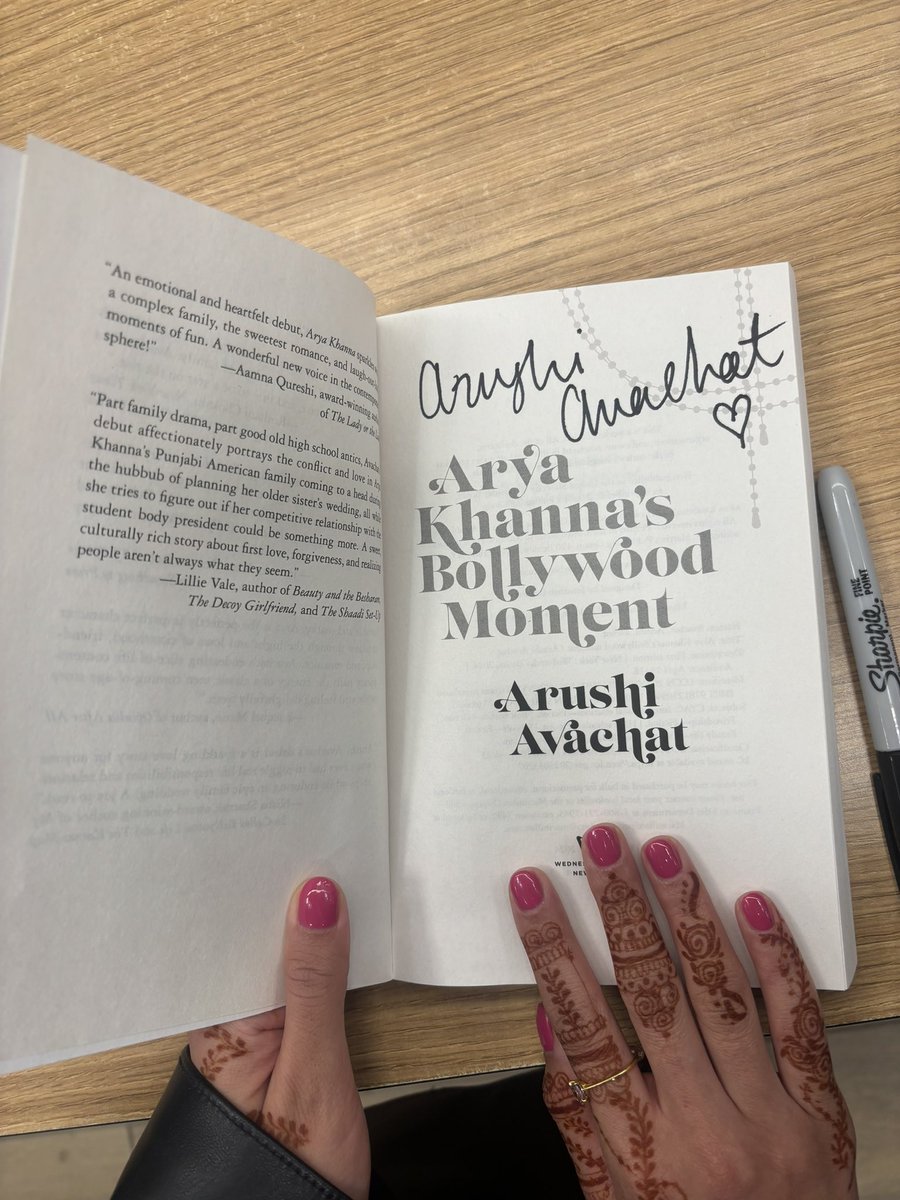 “An emotional and heartfelt debut, Arya Khanna sparkles
a complex family, the sweetest romance, and laugh-out
moments of fun. A wonderful new voice in the contemporary
sphere!”
—Aamna Qureshi, award-winning
of The Lady or the
“Part family drama, part good old high school antics, Avachat’s
debut affectionately portrays the conflict and love in Arya
Khanna’s Punjabi American family coming to a head during
the hubbub of planning her older sister’s wedding, all while
she tries to figure out if her competitive relationship with the
student body president could be something more. A sweet,
culturally rich story about first love, forgiveness, and realizing
people aren’t always what they seem.”
—Lillie Vale, author of Beauty and the Besharam,
The Decoy Girlfriend, and The Shaadi Set-Up
Arushi
Avachat
Arya
Khanna’s
Bollywood
Moment
Arushi
Avachat
Sharpie.
FINE
POINT